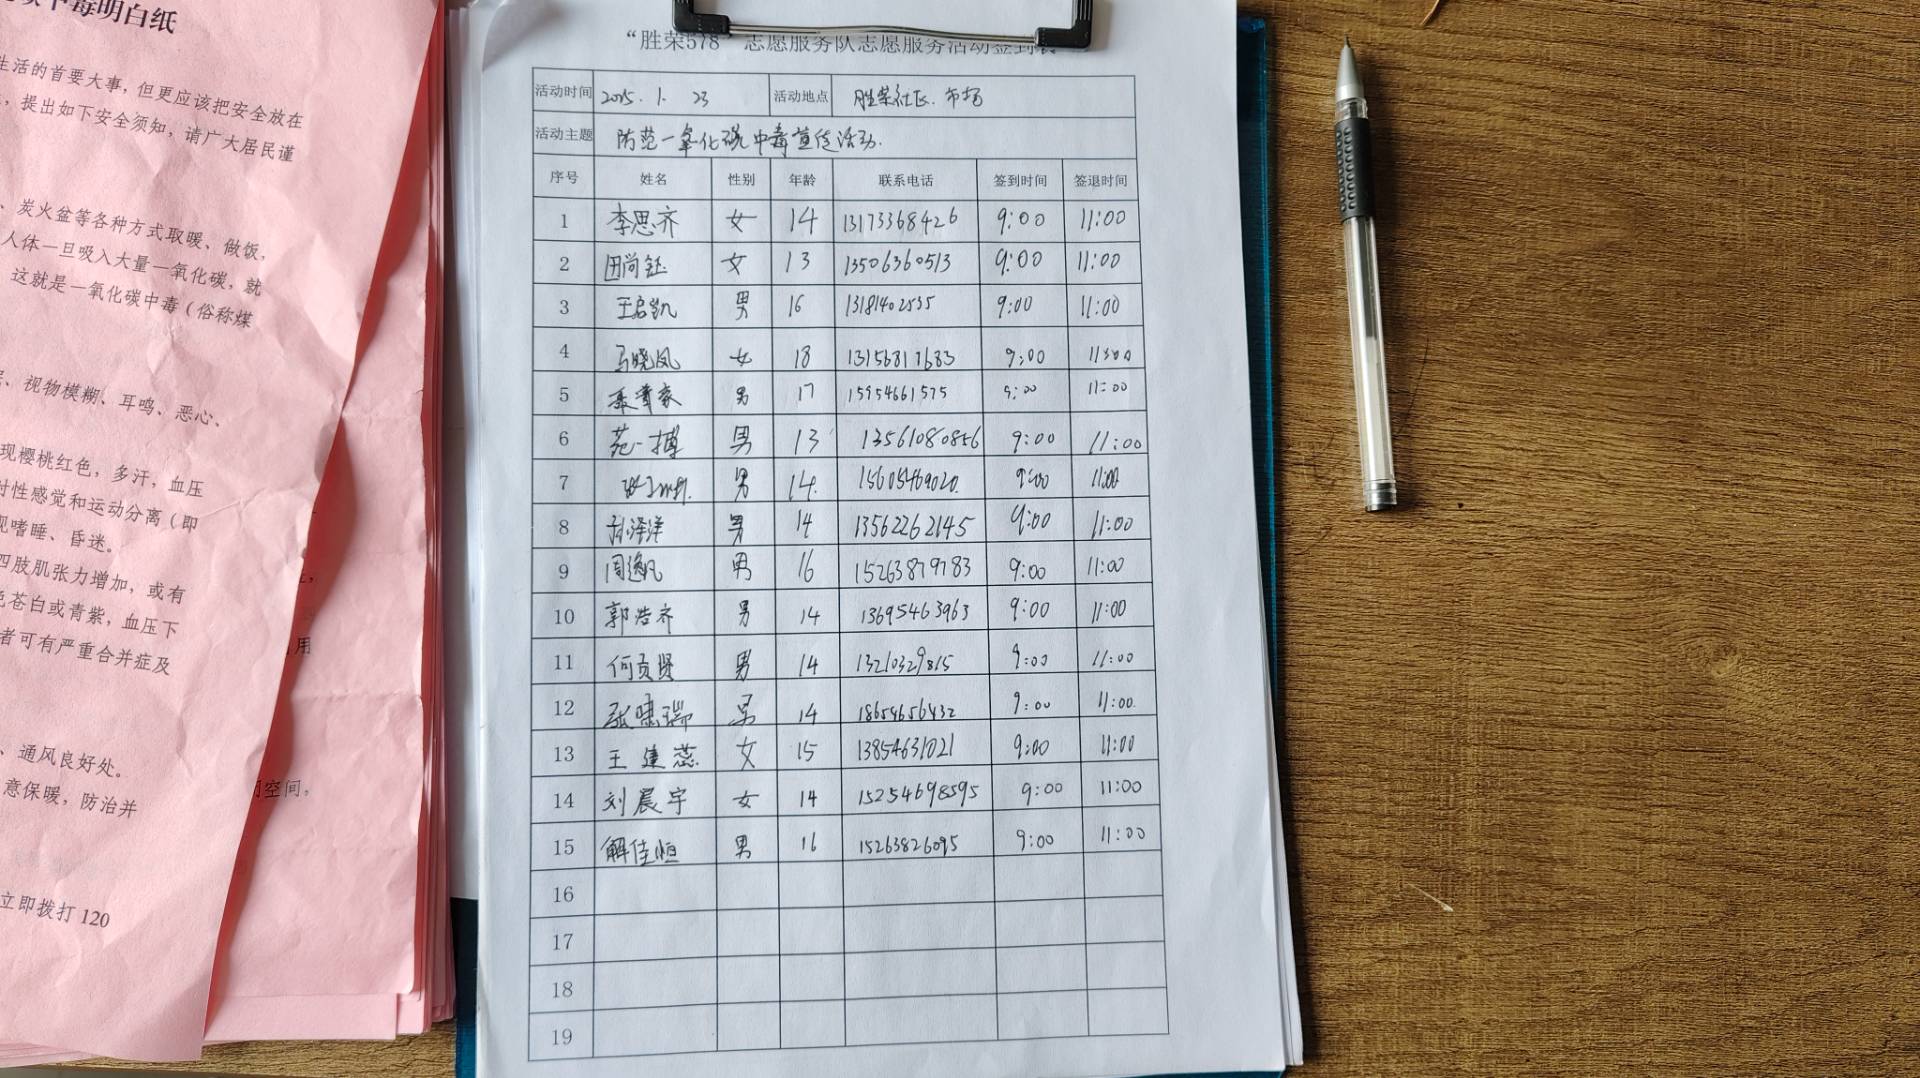 中毒明白纸
生活的首要大事，但更应该把安全放在
，提出如下安全须知，请广大居民谨
、炭火盆等各种方式取暖、做饭，
人体一旦吸入大量一氧化碳，就
这就是一氧化碳中毒（俗称煤
、视物模糊、耳鸣、恶心、
现樱桃红色，多汗，血压
时性感觉和运动分离（即
现嗜睡、昏迷。
四肢肌张力增加，或有
色苍白或青紫，血压下
者可有严重合并症及
、通风良好处。
意保暖，防治并
立即拨打 120
用
闭空间，
“胜荣578”志愿服务队志愿服务活动签到表
活动时间 2025.1.23 活动地点 胜荣社区.市场
活动主题 防范一氧化碳中毒宣传活动.
序号 姓名 性别 年龄 联系电话 签到时间 签退时间
1 李思齐 女 14 13173368426 9:00 11:00
2 田尚钰 女 13 13506360513 9:00 11:00
3 王启凯 男 16 13181402535 9:00 11:00
4 马晓凤 女 18 13156817683 9:00 11:00
5 男 17 15954661575 9:00 11:00
6 范一搏 男 13 13561080856 9:00 11:00
7 男 14. 15605469020. 9:00 11:00
8 孙泽洋 男 14 13562262145 9:00 11:00
9 周逸凡 男 16 15263879783 9:00 11:00
10 郭浩齐 男 14 13695463963 9:00 11:00
11 何贡贤 男 14 13210329815 9:00 11:00
12 张啸瑞 男 14 18654656432 9:00 11:00.
13 王建蕊 女 15 13854631021 9:00 11:00
14 刘晨宇 女 14 15254698595 9:00 11:00
15 解佳恒 男 16 15263826095 9:00 11:00
16
17
18
19